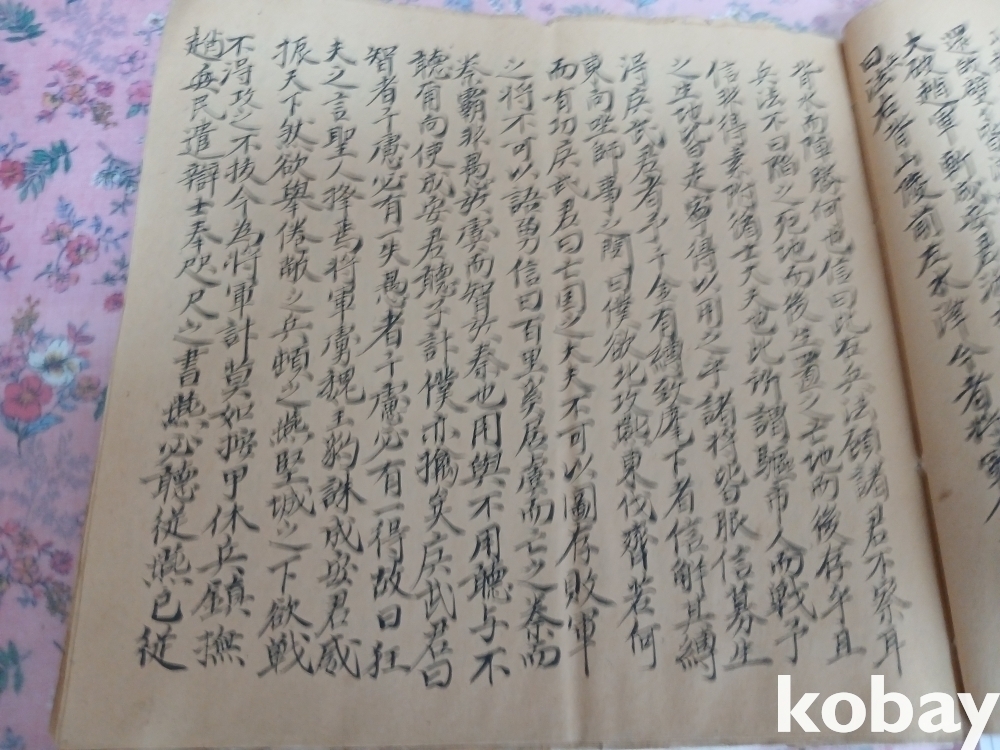 大破趙軍斬成安君
曰法右背山陵前左水澤今者將軍令
背水而陣勝何也信曰此在兵法顧諸君不察耳
兵法不曰陷之死地而後生置之亡地而後存乎且
信非得素附循士大夫也此所謂驅市人而戰予
之生地皆走寧得以用之乎諸將皆服信募生
得広武君者予千金有縛致麾下者信解其縛
東向坐師事之問曰僕欲北攻燕東伐齊若何
而有功広武君曰亡国之大夫不可以圖存敗軍
之將不可以語勇信曰百里奚居虞而亡之秦而
秦霸非愚於虞而智於秦也用與不用聽与不
聽耳向使成安君聽子計僕亦擒矣広武君曰
智者千慮必有一失愚者千慮必有一得故曰狂
夫之言聖人擇焉將軍虜魏王豹誅成安君威
振天下然欲舉倦敝之兵頓之燕堅城之下欲戰
不得攻之不拔今為將軍計莫如按甲休兵鎮撫
趙每民遣辯士奉咫尺之書燕必聽從燕已從
kobay